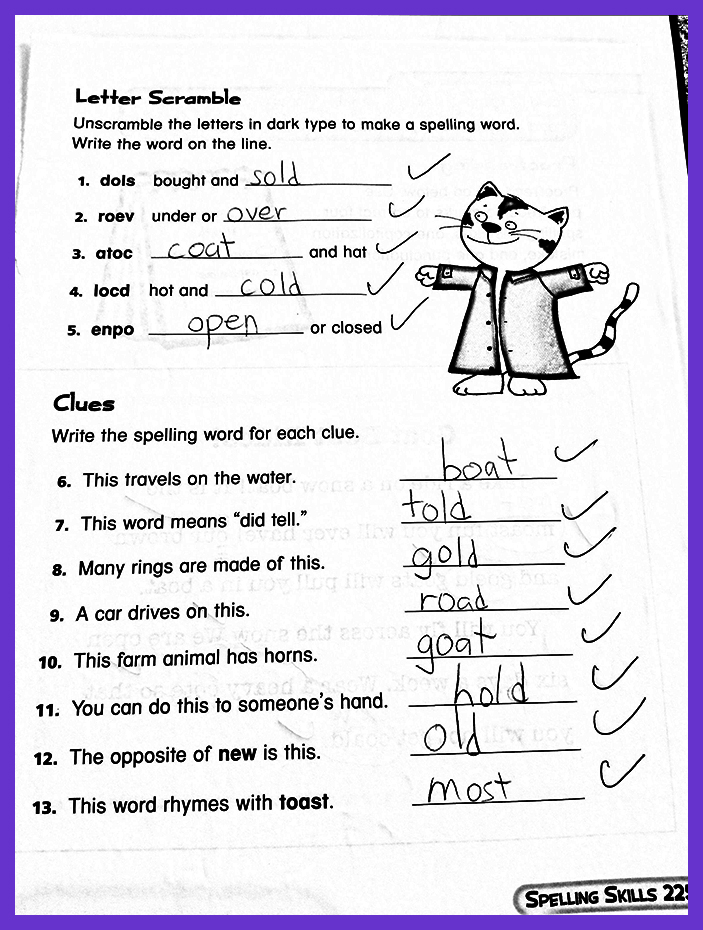 Letter Scramble
Unscramble the letters in dark type to make a spelling word.
Write the word on the line.
1. dols bought and sold
2. roev under or over
3. atoc coat and hat
4. locd hot and cold
5. enpo open or closed
Clues
Write the spelling word for each clue.
6. This travels on the water. boat
7. This word means “did tell.” told
8. Many rings are made of this. gold
9. A car drives on this. road
10. This farm animal has horns. goat
11. You can do this to someone's hand. hold
12. The opposite of new is this. old
13. This word rhymes with toast. most
SPELLING SKILLS